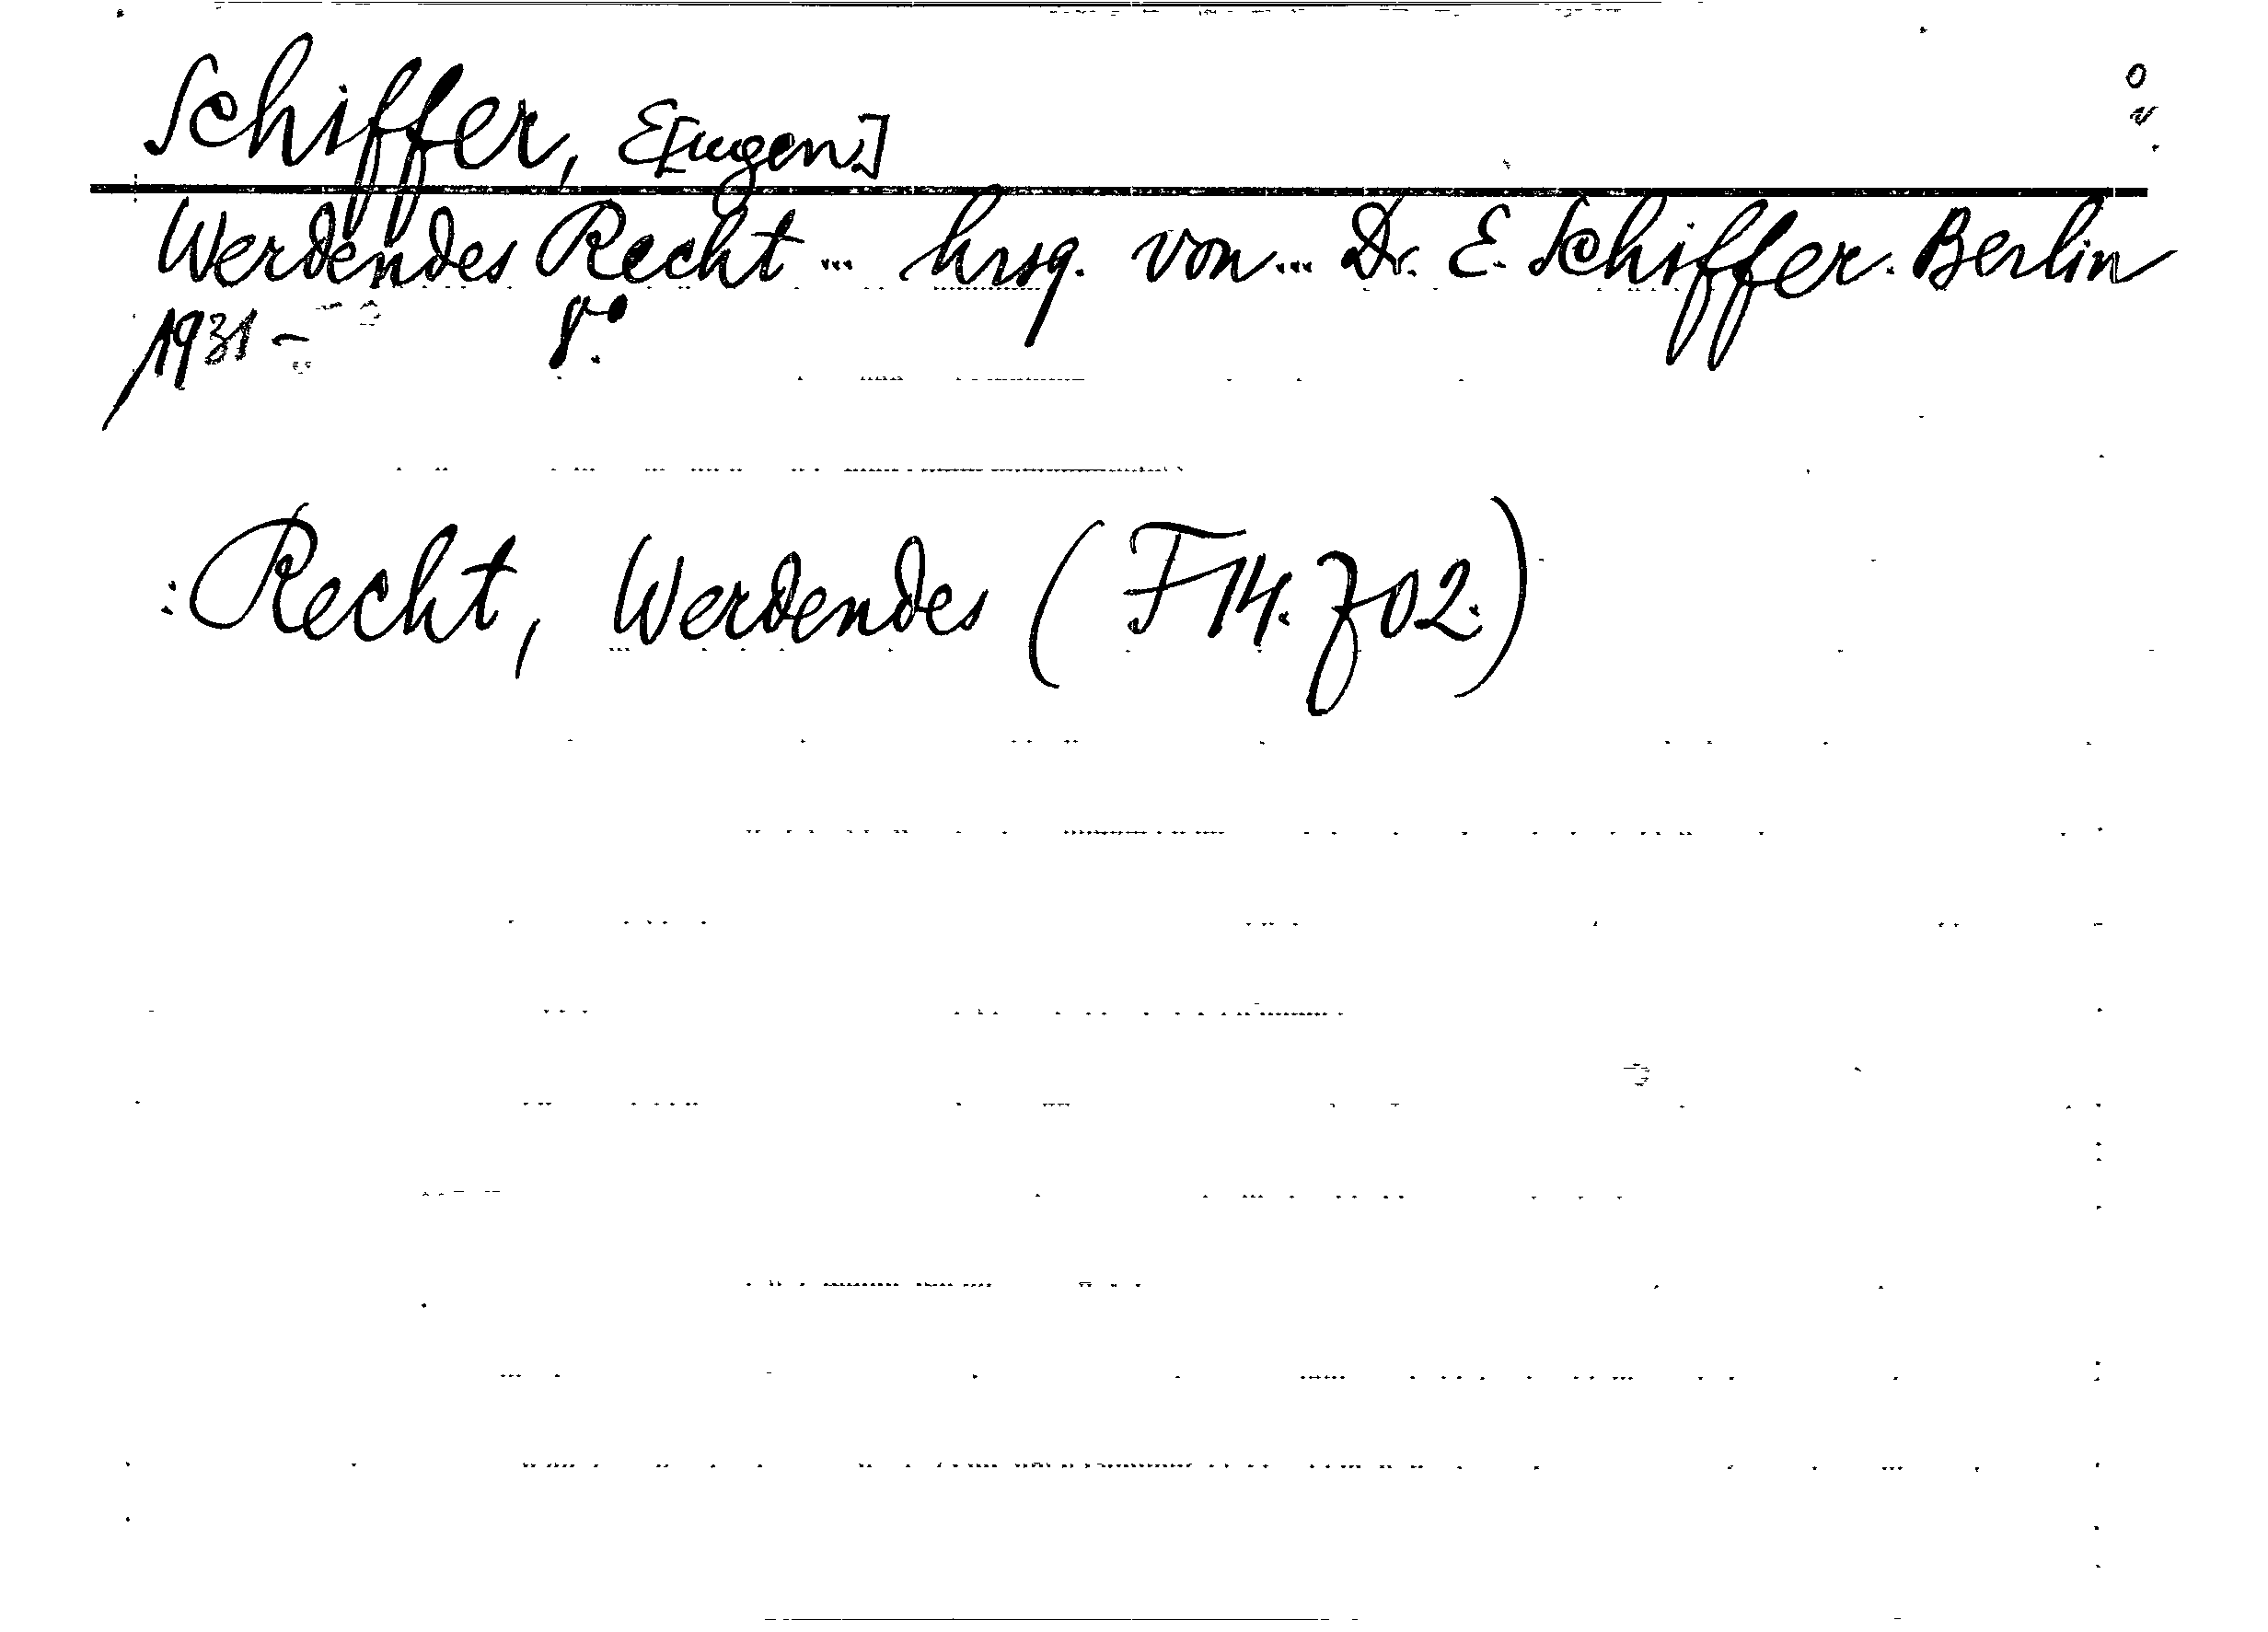 Schiffer, E[ugen]
Werdendes Recht ... hrsg. von ... Dr. E. Schiffer. Berlin
1931 - 8.º
: Recht, Werdendes (F14. 702.)